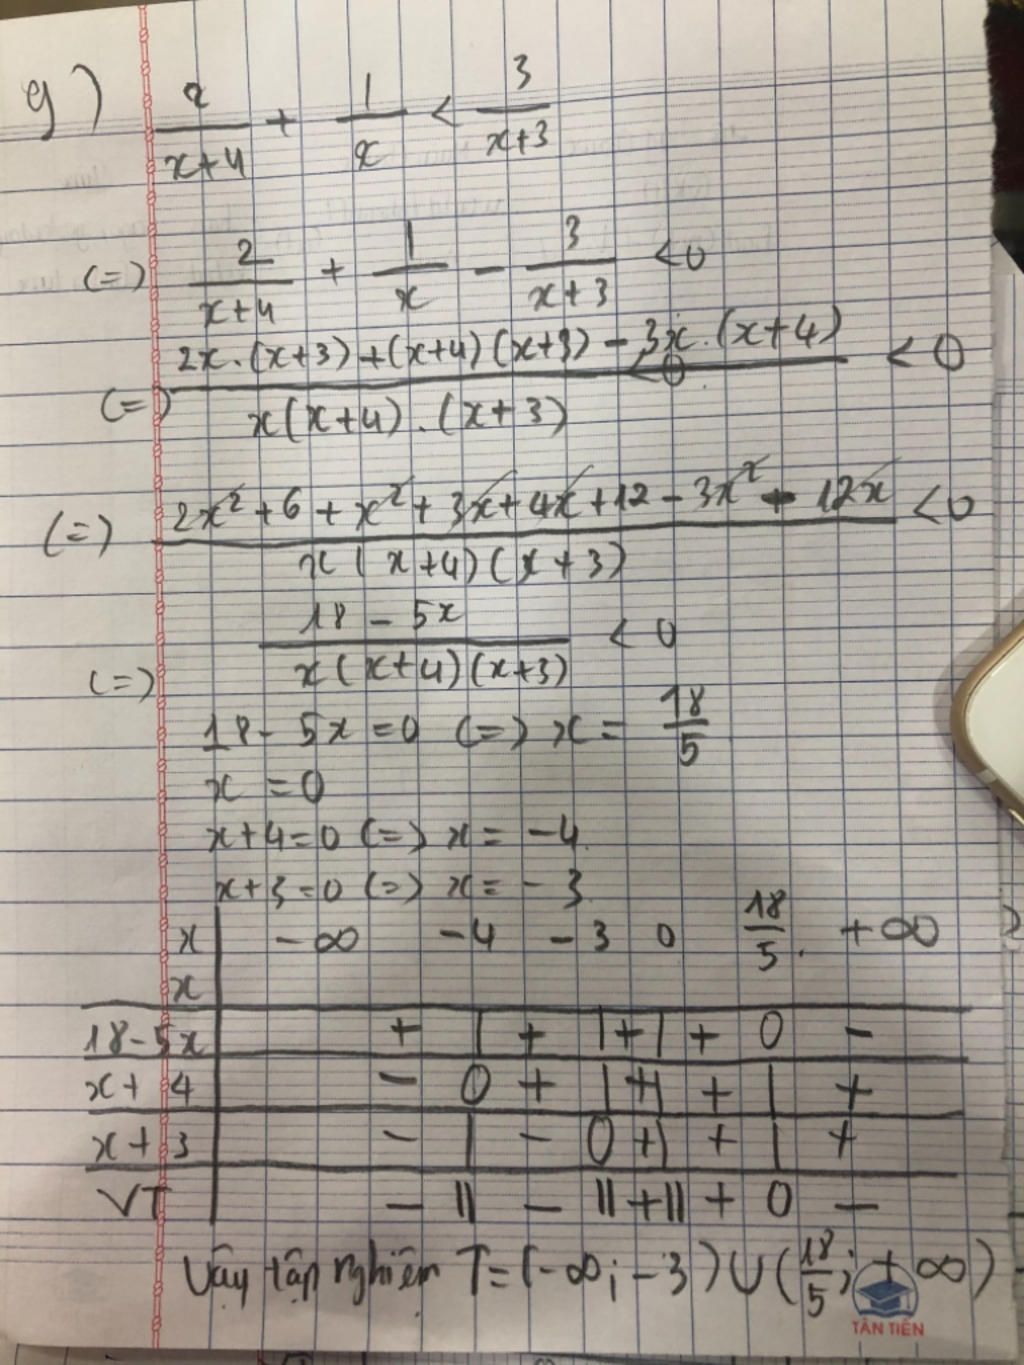 g) 2/(x+4) + 1/x < 3/(x+3)
(=) 2/(x+4) + 1/x - 3/(x+3) <0
(=) (2x.(x+3) + (x+4)(x+3) - 3x.(x+4))/(x(x+4).(x+3)) <0 < 0
(=) (2x² + 6 + x² + 3x + 4x + 12 - 3x² - 12x)/(x(x+4)(x+3)) <0
(=) (18 - 5x)/(x(x+4)(x+3)) < 0
18 - 5x = 0 (=) x = 18/5
x = 0
x+4=0 (=) x = -4
x+3=0 (=) x = -3
x -∞ -4 -3 0 18/5 +∞
x
18-5x + | + | + | + 0 -
x+4 - 0 + | + | + | +
x+3 - | - 0 + | + | +
VT - || - || + || + 0 -
Vậy tập nghiệm T=(-∞; -3) ∪ (18/5; +∞)
TÂN TIẾN